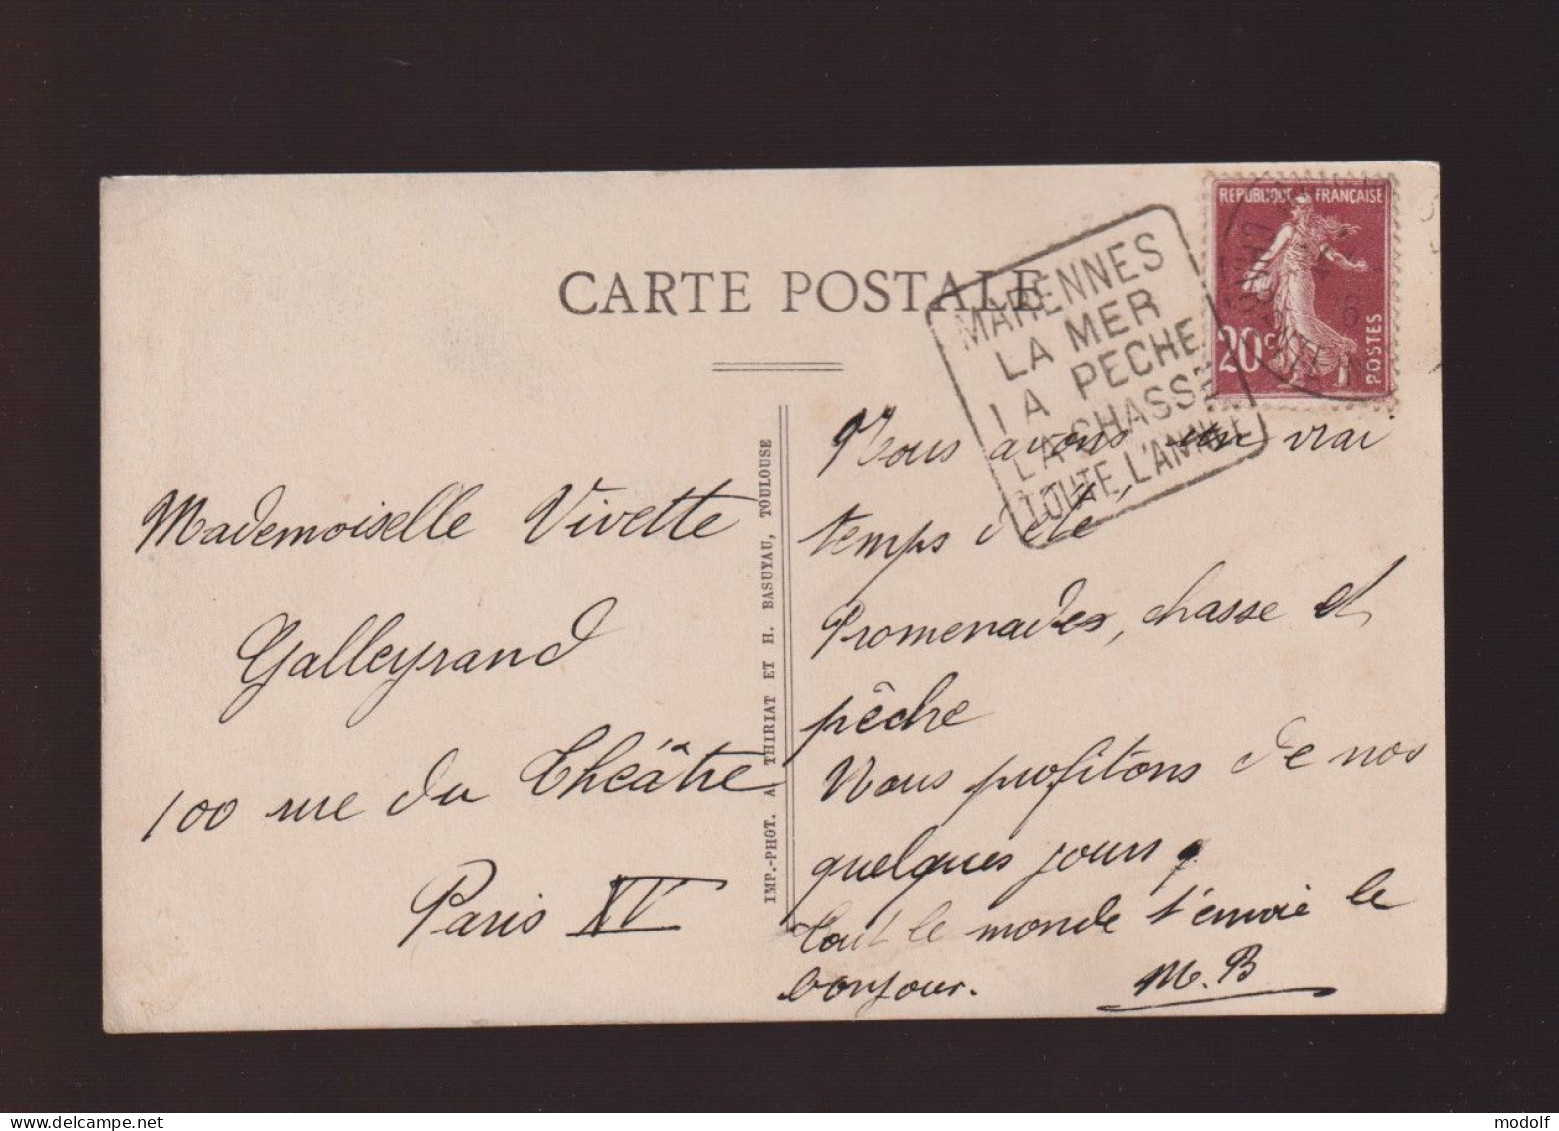 CARTE POSTALE
MARENNES
LA MER
LA PECHE
LA CHASSE
TOUTE L'ANNEE
REPUBLIQUE FRANÇAISE
20c
POSTES
Mademoiselle Vivette
Galleyrand
100 rue du Théâtre
Paris XV
IMP.-PHOT. A. THIRIAT ET H. BASUYAU, TOULOUSE
Nous avons un vrai
temps d'été
Promenades, chasse et
pêche
Nous profitons de nos
quelques jours,
Tout le monde t'envoie le
bonjour. M.B
modolf